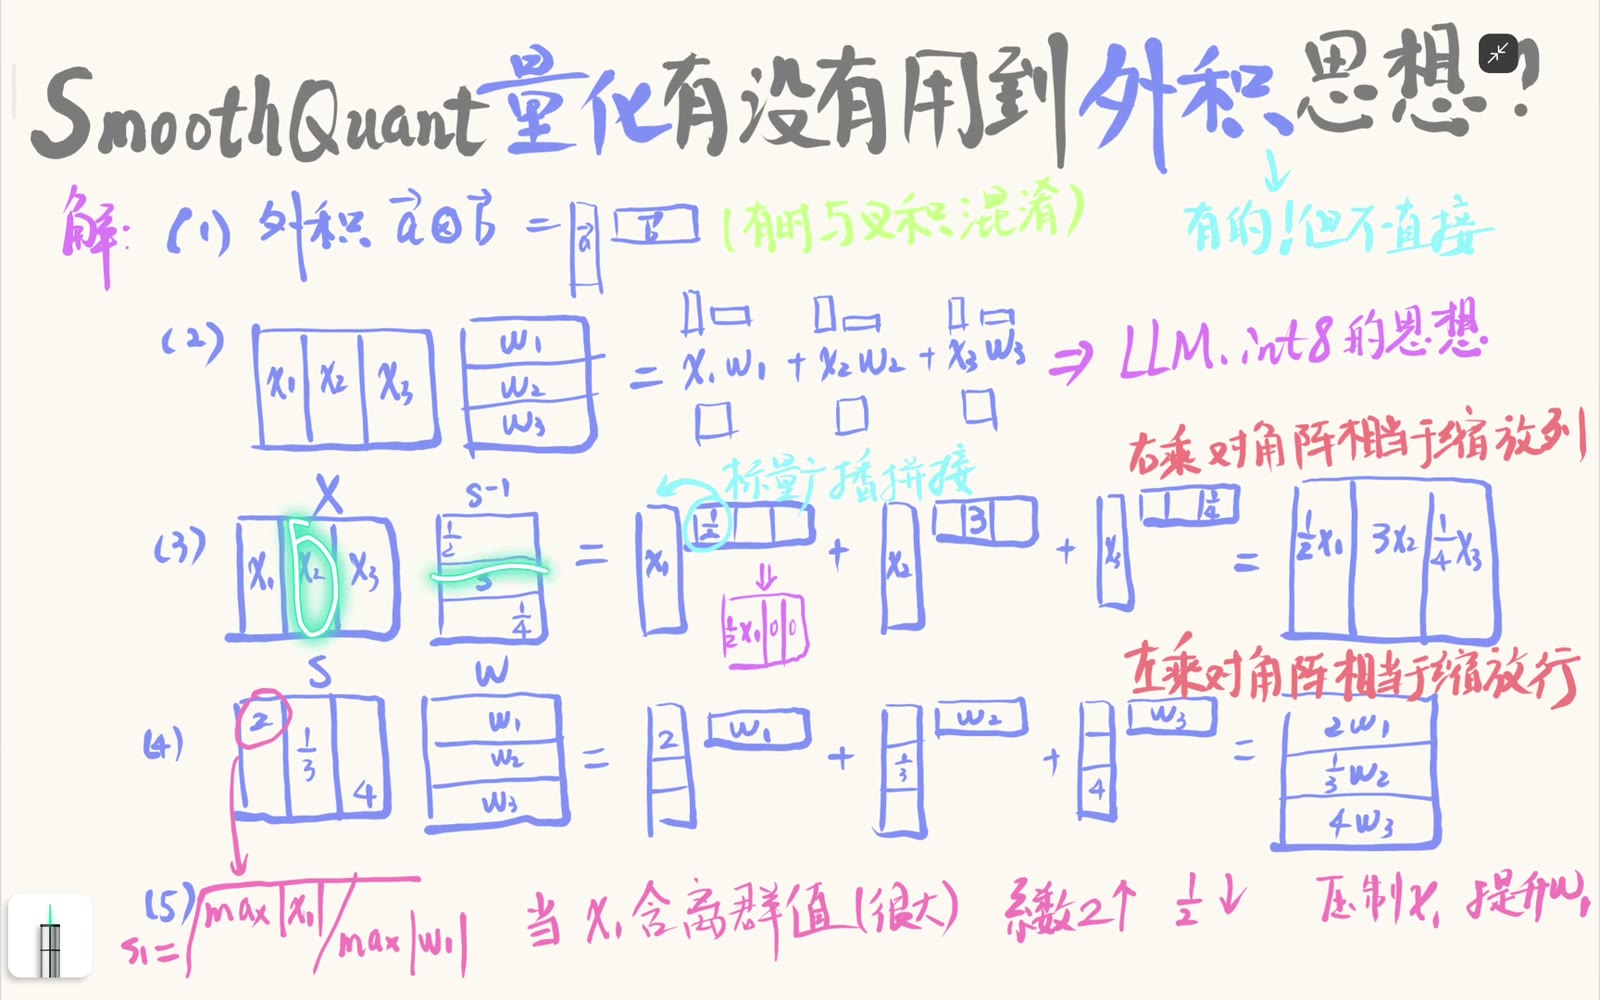 SmoothQuant量化有没有用到外积思想？
解：(1) 外积 a⊗b = a b (有时与叉积混淆)
有的！但不直接
(2) x₁ x₂ x₃ w₁ w₂ w₃ = x₁w₁ + x₂w₂ + x₃w₃ ⇒ LLM.int8的思想
右乘对角阵相当于缩放列
X s⁻¹ 标量广播拼接
(3) x₁ x₂ x₃ 1/2 1/4 = x₁ 1/2 + x₂ 3 + x₃ 1/4 = 1/2x₁ 3x₂ 1/4x₃
⇓
1/2x₁ 0 0
左乘对角阵相当于缩放行
S W
(4) 2 1/3 4 w₁ w₂ w₃ = 2 w₁ + 1/3 w₂ + 4 w₃ = 2w₁ 1/3w₂ 4w₃
(5) s₁=√max|x₁|/max|w₁| 当x₁含离群值(很大) 系数2↑ 1/2↓ 压制x₁ 提升w₁